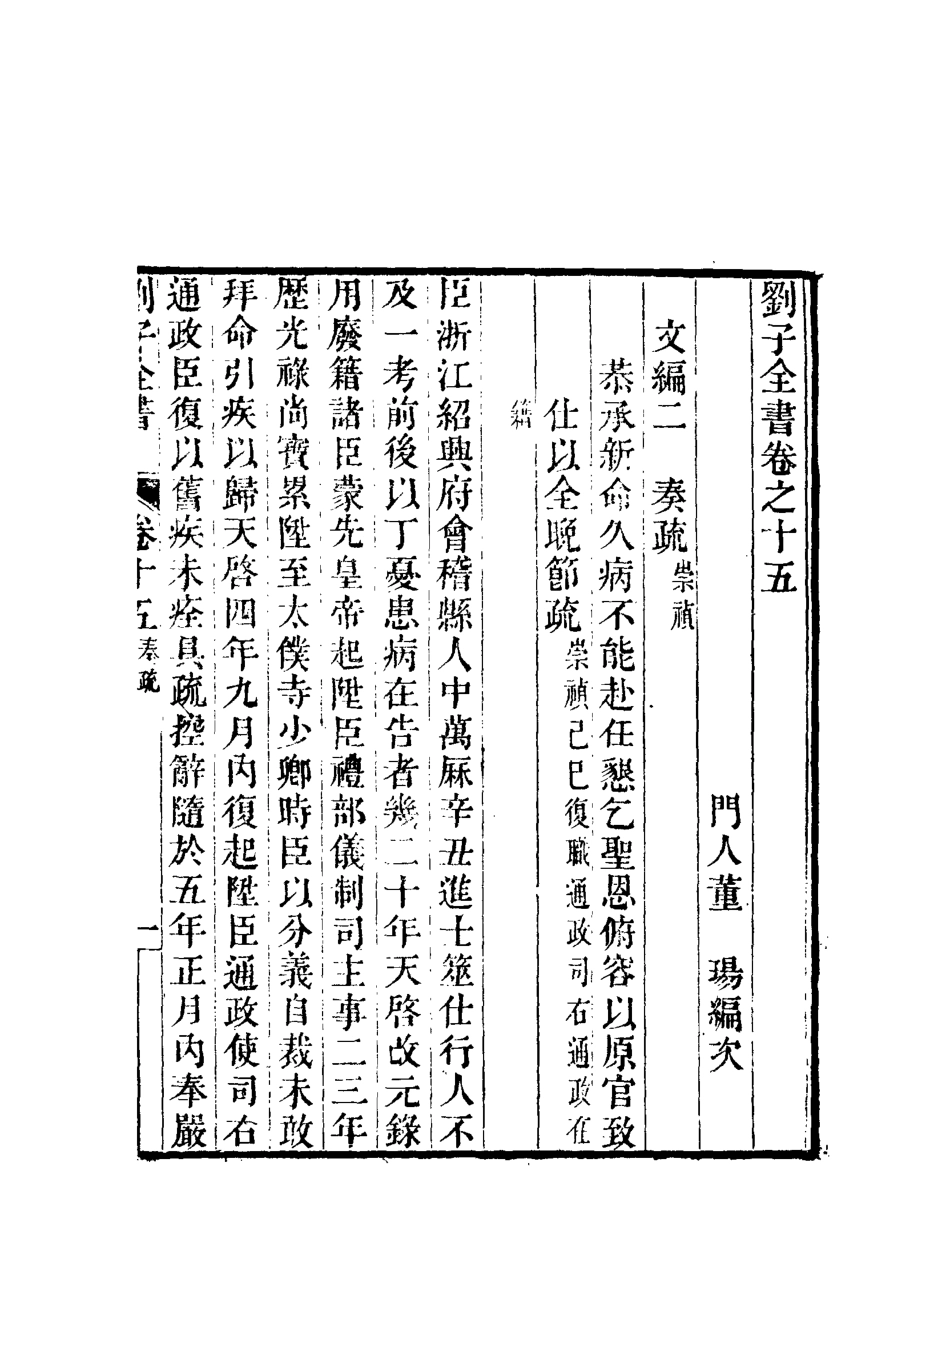 劉子全書卷之十五
門人董　瑒編次
文編二　奏疏崇禎
恭承新命久病不能赴任懇乞聖恩俯容以原官致
仕以全晚節疏崇禎己巳復職通政司右通政在
籍
臣浙江紹興府會稽縣人中萬厤辛丑進士筮仕行人不
及一考前後以丁憂患病在告者幾二十年天啓改元錄
用廢籍諸臣蒙先皇帝起陞臣禮部儀制司主事二三年
歷光祿尚寶累陞至太僕寺少卿時臣以分義自裁未敢
拜命引疾以歸天啓四年九月內復起陞臣通政使司右
通政臣復以舊疾未痊具疏控辭隨於五年正月內奉嚴
劉子全書　卷十五奏疏　一